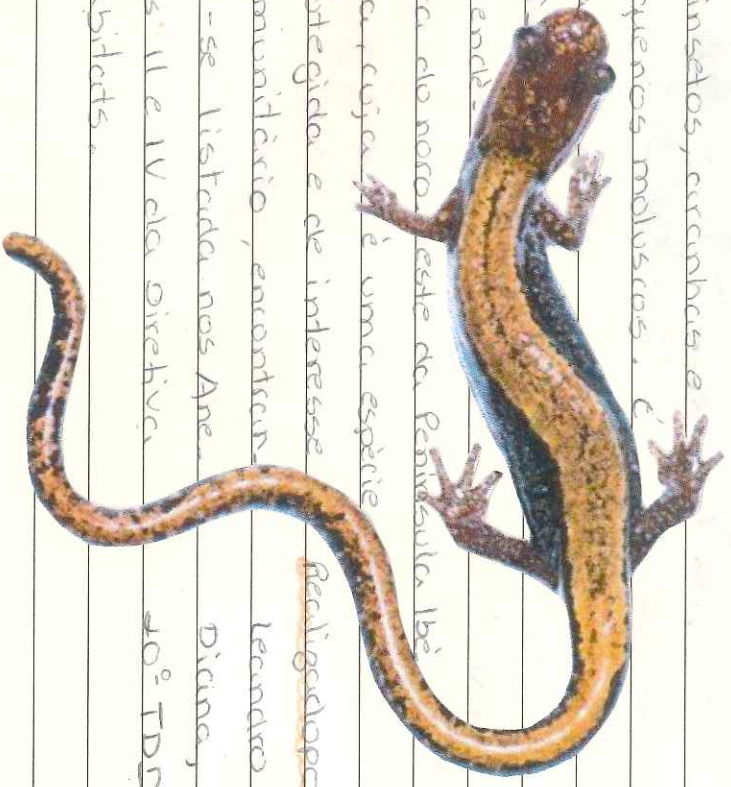 insetos, aranhas e
quenos moluscos. É
endê-
a do noroeste da Península Ibé
a, cuja é uma espécie
otegida e de interesse
munitário, encontran-
-se listada nos Ane-
s II e IV da Diretiva
bitats.
Realizado po
Leandro
Diana,
10º